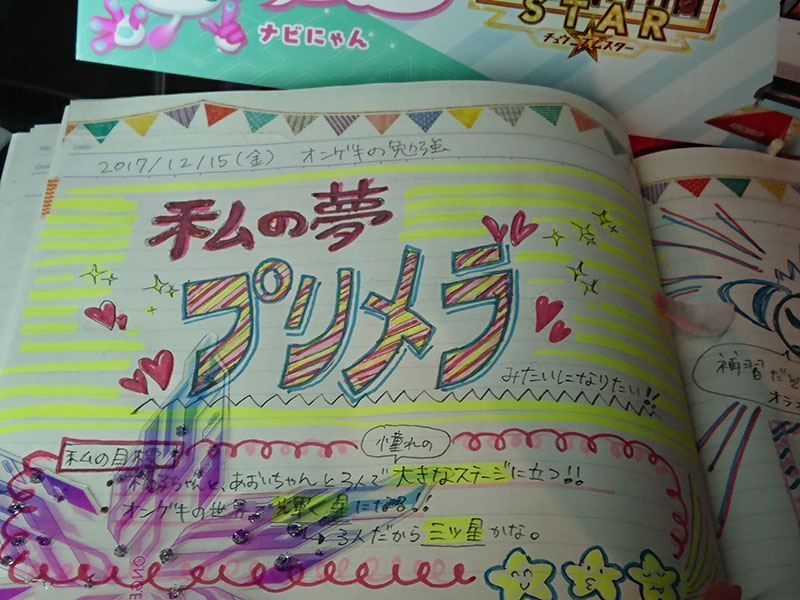 ナビにゃん
STAR
チュウニズムスター
2017/12/15(金) オンゲキの勉強
私の夢
プリメラ
みたいになりたい!!
私の目標
憧れの
あおいちゃんと3人で大きなステージに立つ!!
オンゲキの世界で輝く星になる!!
→3人だから三ツ星かな。
補習だ
オラ